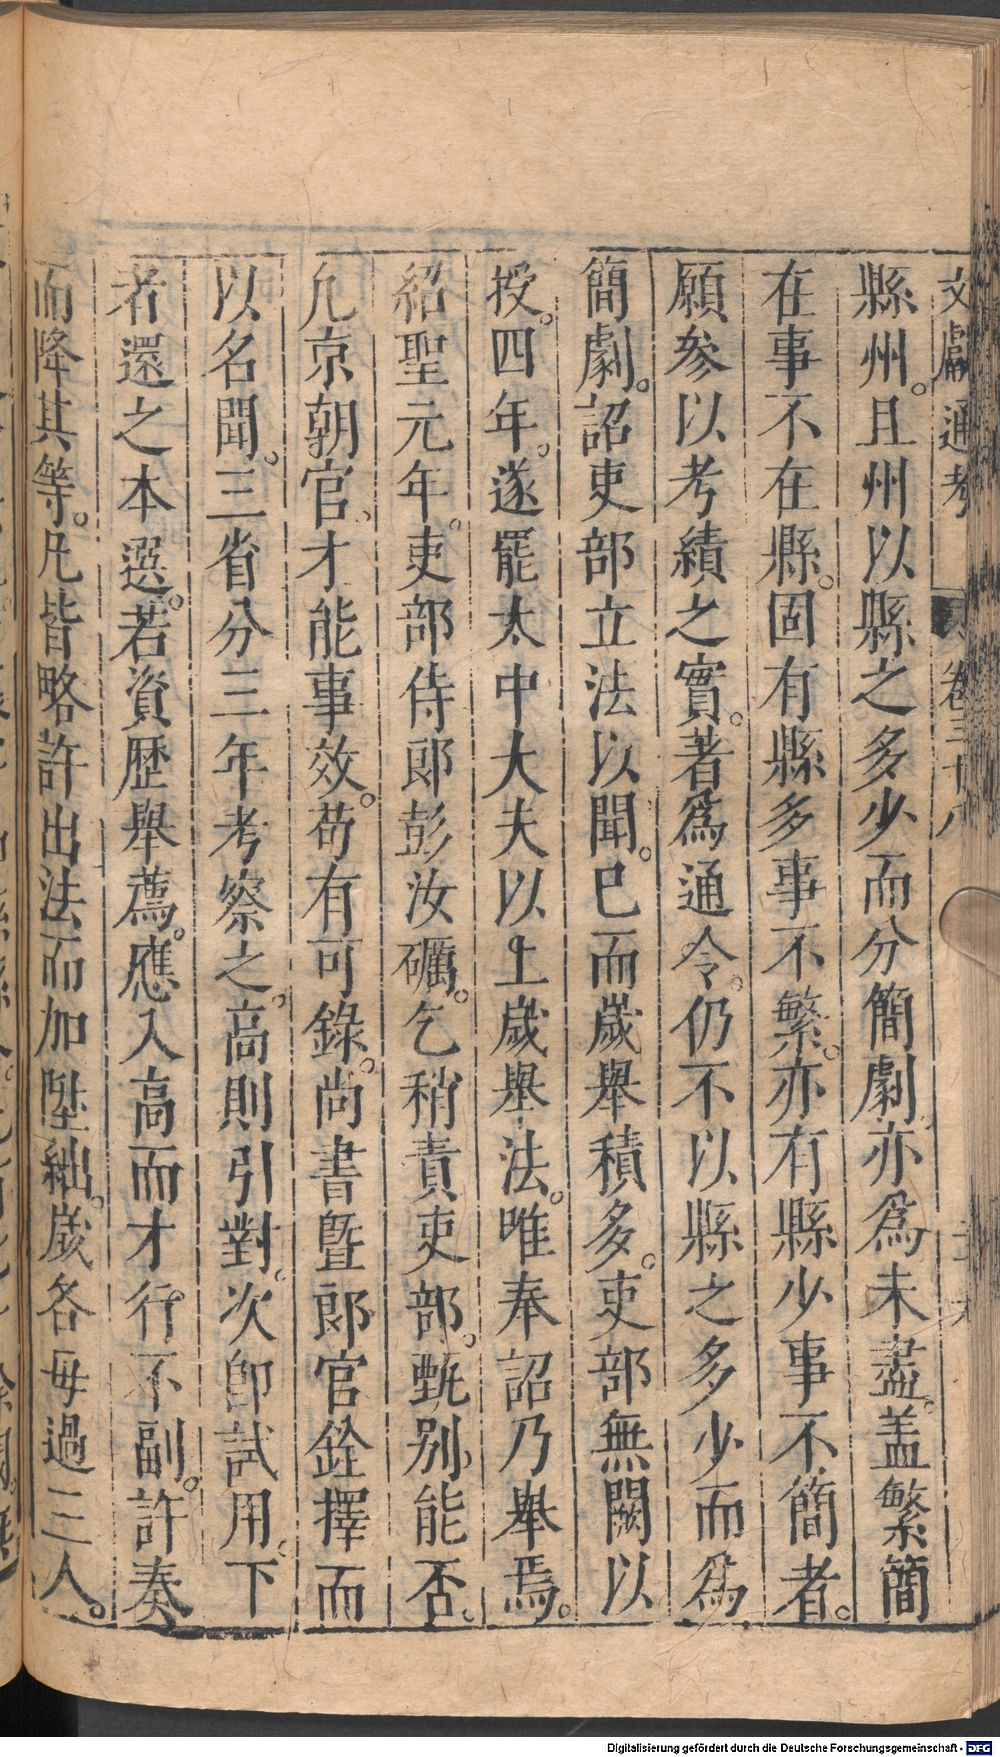 文獻通考 卷三十八
縣州。且州以縣之多少而分簡劇亦爲未盡。盖繁簡
在事不在縣。固有縣多事不繁。亦有縣少事不簡者。
願參以考績之實。著爲通令。仍不以縣之多少而爲
簡劇。詔吏部立法以聞。已而歲舉積多。吏部無闕以
授。四年。遂罷太中大夫以上歲舉法。唯奉詔乃舉焉。
紹聖元年。吏部侍郎彭汝礪。乞稍責吏部。甄别能否。
凢京朝官、才能事效。苟有可錄。尚書曁郎官銓擇而
以名聞。三省分三年考察之。高則引對。次卽試用。下
者還之本選。若資歷舉薦。應入高而才行不副。許奏
而降其等。凡皆略許出法而加陞絀。歲各毋過三人。
Digitalisierung gefördert durch die Deutsche Forschungsgemeinschaft - DFG